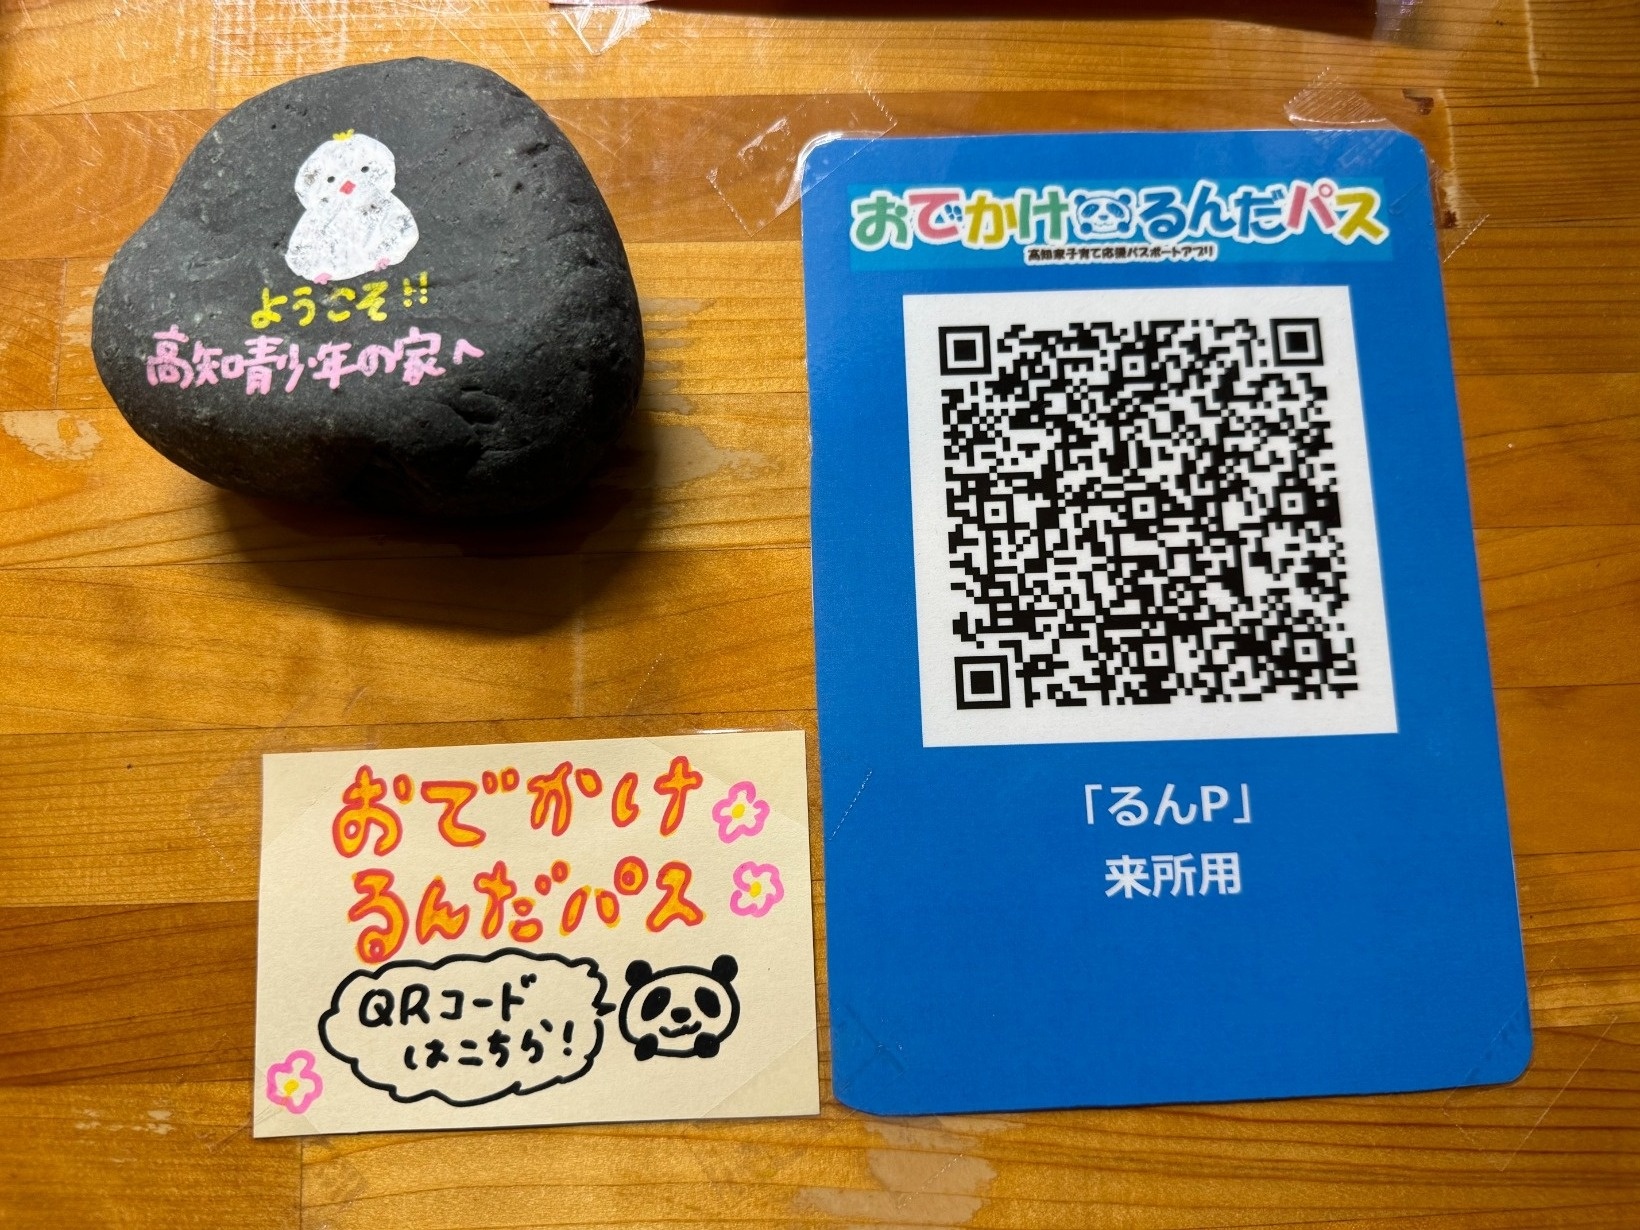 ようこそ!!
高知青少年の家へ
おでかけるんだパス
高知家子育て応援パスポートアプリ
「るんP」
来所用
おでかけ
るんだパス
QRコード
はこちら!